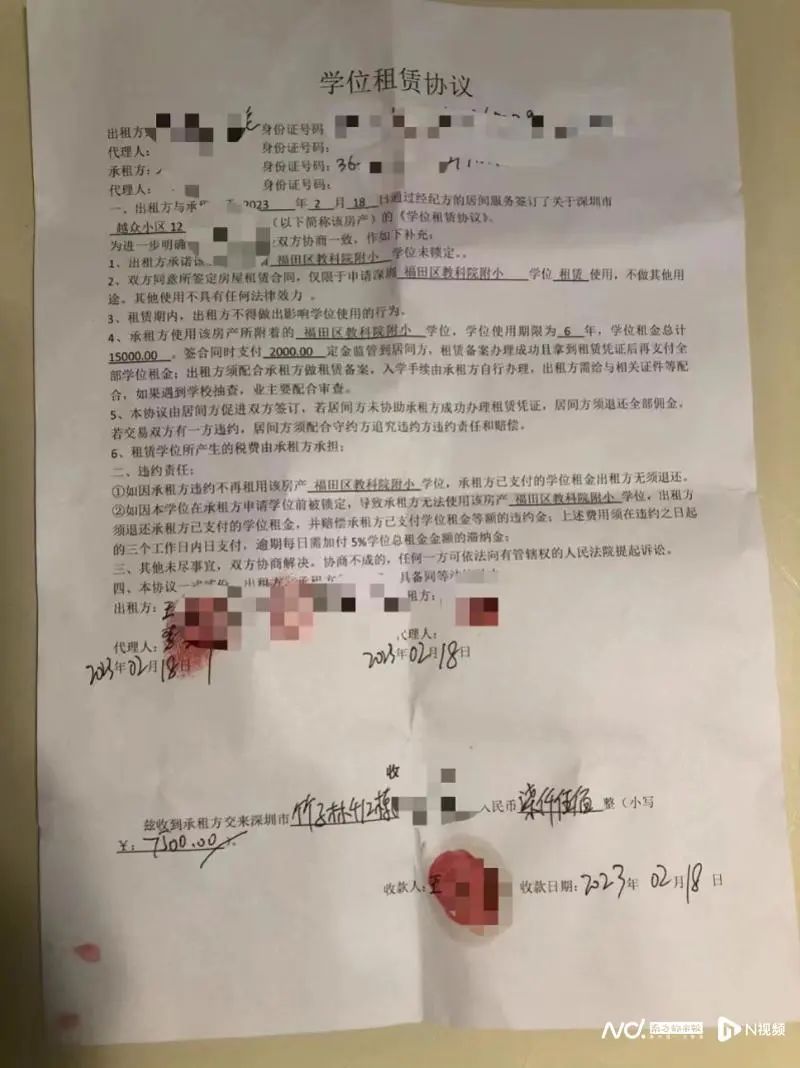 学位租赁协议
出租方 身份证号码
代理人: 身份证号码:
承租方: 身份证号码: 36
代理人: 身份证号码:
一、出租方与承 2023 年 2 月 18 日通过经纪方的居间服务签订了关于深圳市
越众小区 12 (以下简称该房产)的《学位租赁协议》、
为进一步明确 双方协商一致，作如下补充：
1、出租方承诺该 福田区教科院附小 学位未锁定。。
2、双方同意所签定房屋租赁合同，仅限于申请深圳 福田区教科院附小 学位 租赁 使用，不做其他用
途。其他使用不具有任何法律效力 。
3、租赁期内，出租方不得做出影响学位使用的行为。
4、承租方使用该房产所附着的 福田区教科院附小 学位，学位使用期限为 6 年，学位租金总计
15000.00 。签合同时支付 2000.00 定金监管到居间方，租赁备案办理成功且拿到租赁凭证后再支付全
部学位租金；出租方须配合承租方做租赁备案，入学手续由承租方自行办理，出租方需给与相关证件等配
合，如果遇到学校抽查，业主要配合审查。
5、本协议由居间方促进双方签订，若居间方未协助承租方成功办理租赁凭证，居间方须退还全部佣金，
若交易双方有一方违约，居间方须配合守约方追究违约方违约责任和赔偿。
6、租赁学位所产生的税费由承租方承担；
二、违约责任：
①如因承租方违约不再租用该房产 福田区教科院附小 学位，承租方已支付的学位租金出租方无须退还。
②如因本学位在承租方申请学位前被锁定，导致承租方无法使用该房产 福田区教科院附小 学位，出租方
须退还承租方已支付的学位租金，并赔偿承租方已支付学位租金等额的违约金；上述费用须在违约之日起
的三个工作日内日支付，逾期每日需加付 5%学位总租金金额的滞纳金；
三、其他未尽事宜，双方协商解决。协商不成的，任何一方可依法向有管辖权的人民法院提起诉讼。
四、本协议一式 份，出租方、承租方 具备同等
出租方：王 租方：
代理人： 代理人：
2023年02月18日 2023年02月18日
收
兹收到承租方交来深圳市 竹子林 人民币 柒仟伍佰 整（小写
¥：7500.00 ）
收款人：王 收款日期：2023年 02月18 日
N视频